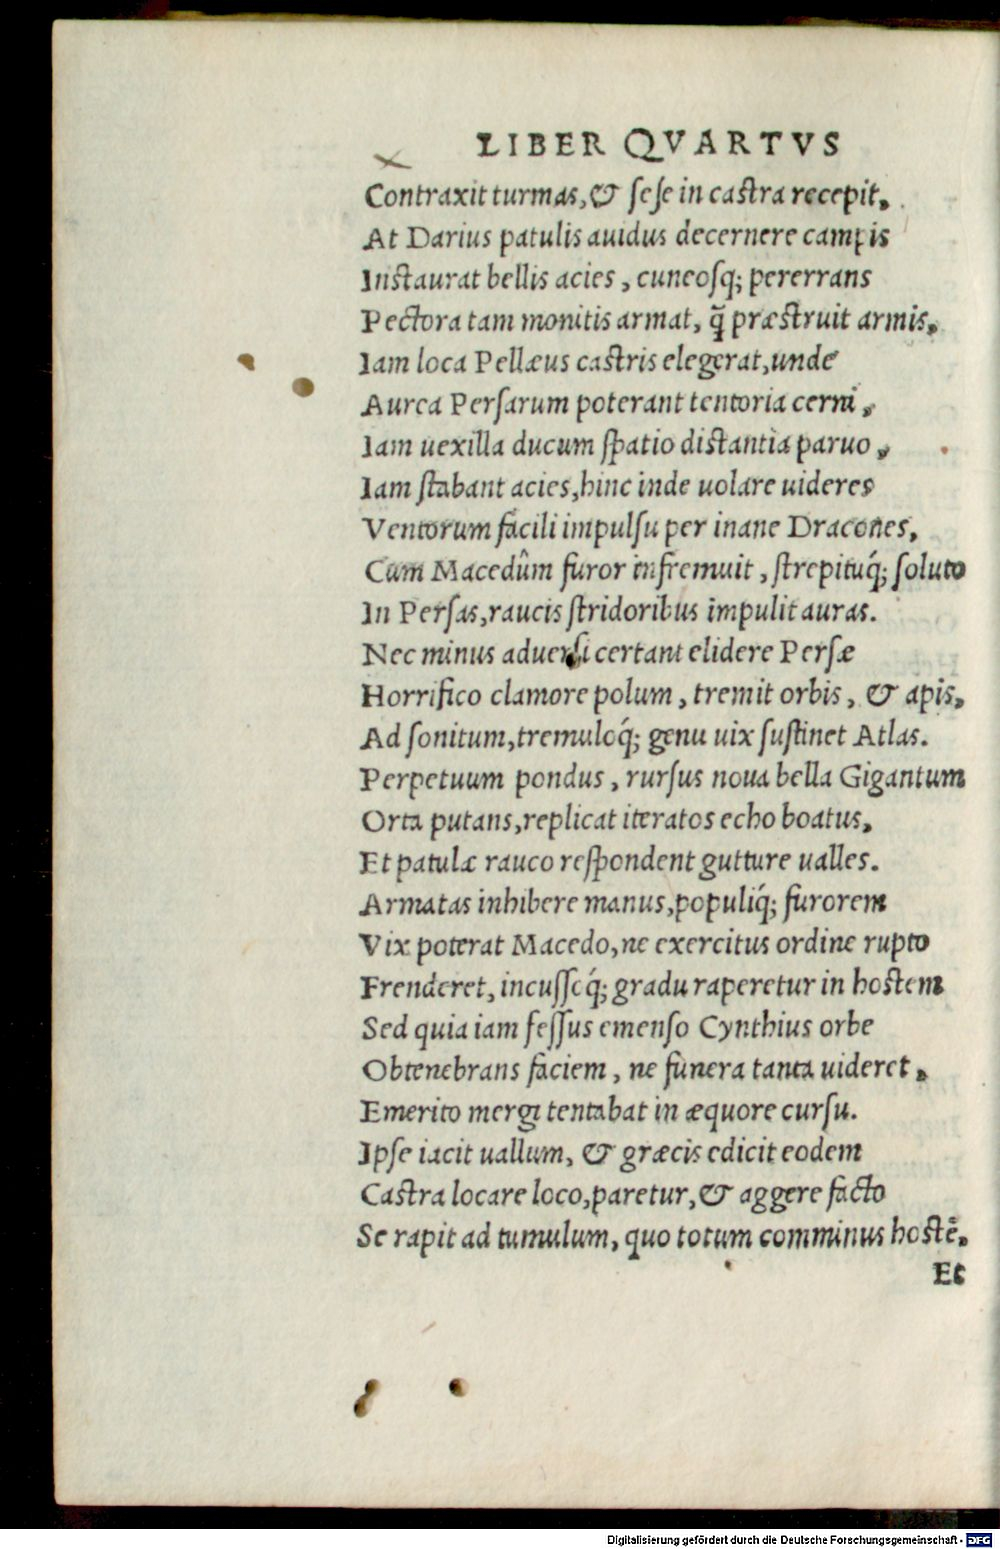 LIBER QVARTVS
Contraxit turmas, & sese in castra recepit,
At Darius patulis auidus decernere campis
Instaurat bellis acies, cuneosq; pererrans
Pectora tam monitis armat, q̃ præstruit armis,
Iam loca Pellæus castris elegerat, unde
Aurea Persarum poterant tentoria cerni,
Iam uexilla ducum spatio distantia paruo,
Iam stabant acies, hinc inde uolare uideres
Ventorum facili impulsu per inane Dracones,
Cum Macedûm furor infremuit, strepituq́; soluto
In Persas, raucis stridoribus impulit auras.
Nec minus aduersi certant elidere Persæ
Horrifico clamore polum, tremit orbis, & apis,
Ad sonitum, tremuloq́; genu uix sustinet Atlas.
Perpetuum pondus, rursus noua bella Gigantum
Orta putans, replicat iteratos echo boatus,
Et patulæ rauco respondent gutture ualles.
Armatas inhibere manus, populiq́; furorem
Vix poterat Macedo, ne exercitus ordine rupto
Frenderet, incusseq́; gradu raperetur in hostem
Sed quia iam fessus emenso Cynthius orbe
Obtenebrans faciem, ne funera tanta uideret,
Emerito mergi tentabat in æquore cursu.
Ipse iacit uallum, & græcis edicit eodem
Castra locare loco, paretur, & aggere facto
Se rapit ad tumulum, quo totum comminus hostẽ,
Et
Digitalisierung gefördert durch die Deutsche Forschungsgemeinschaft - DFG